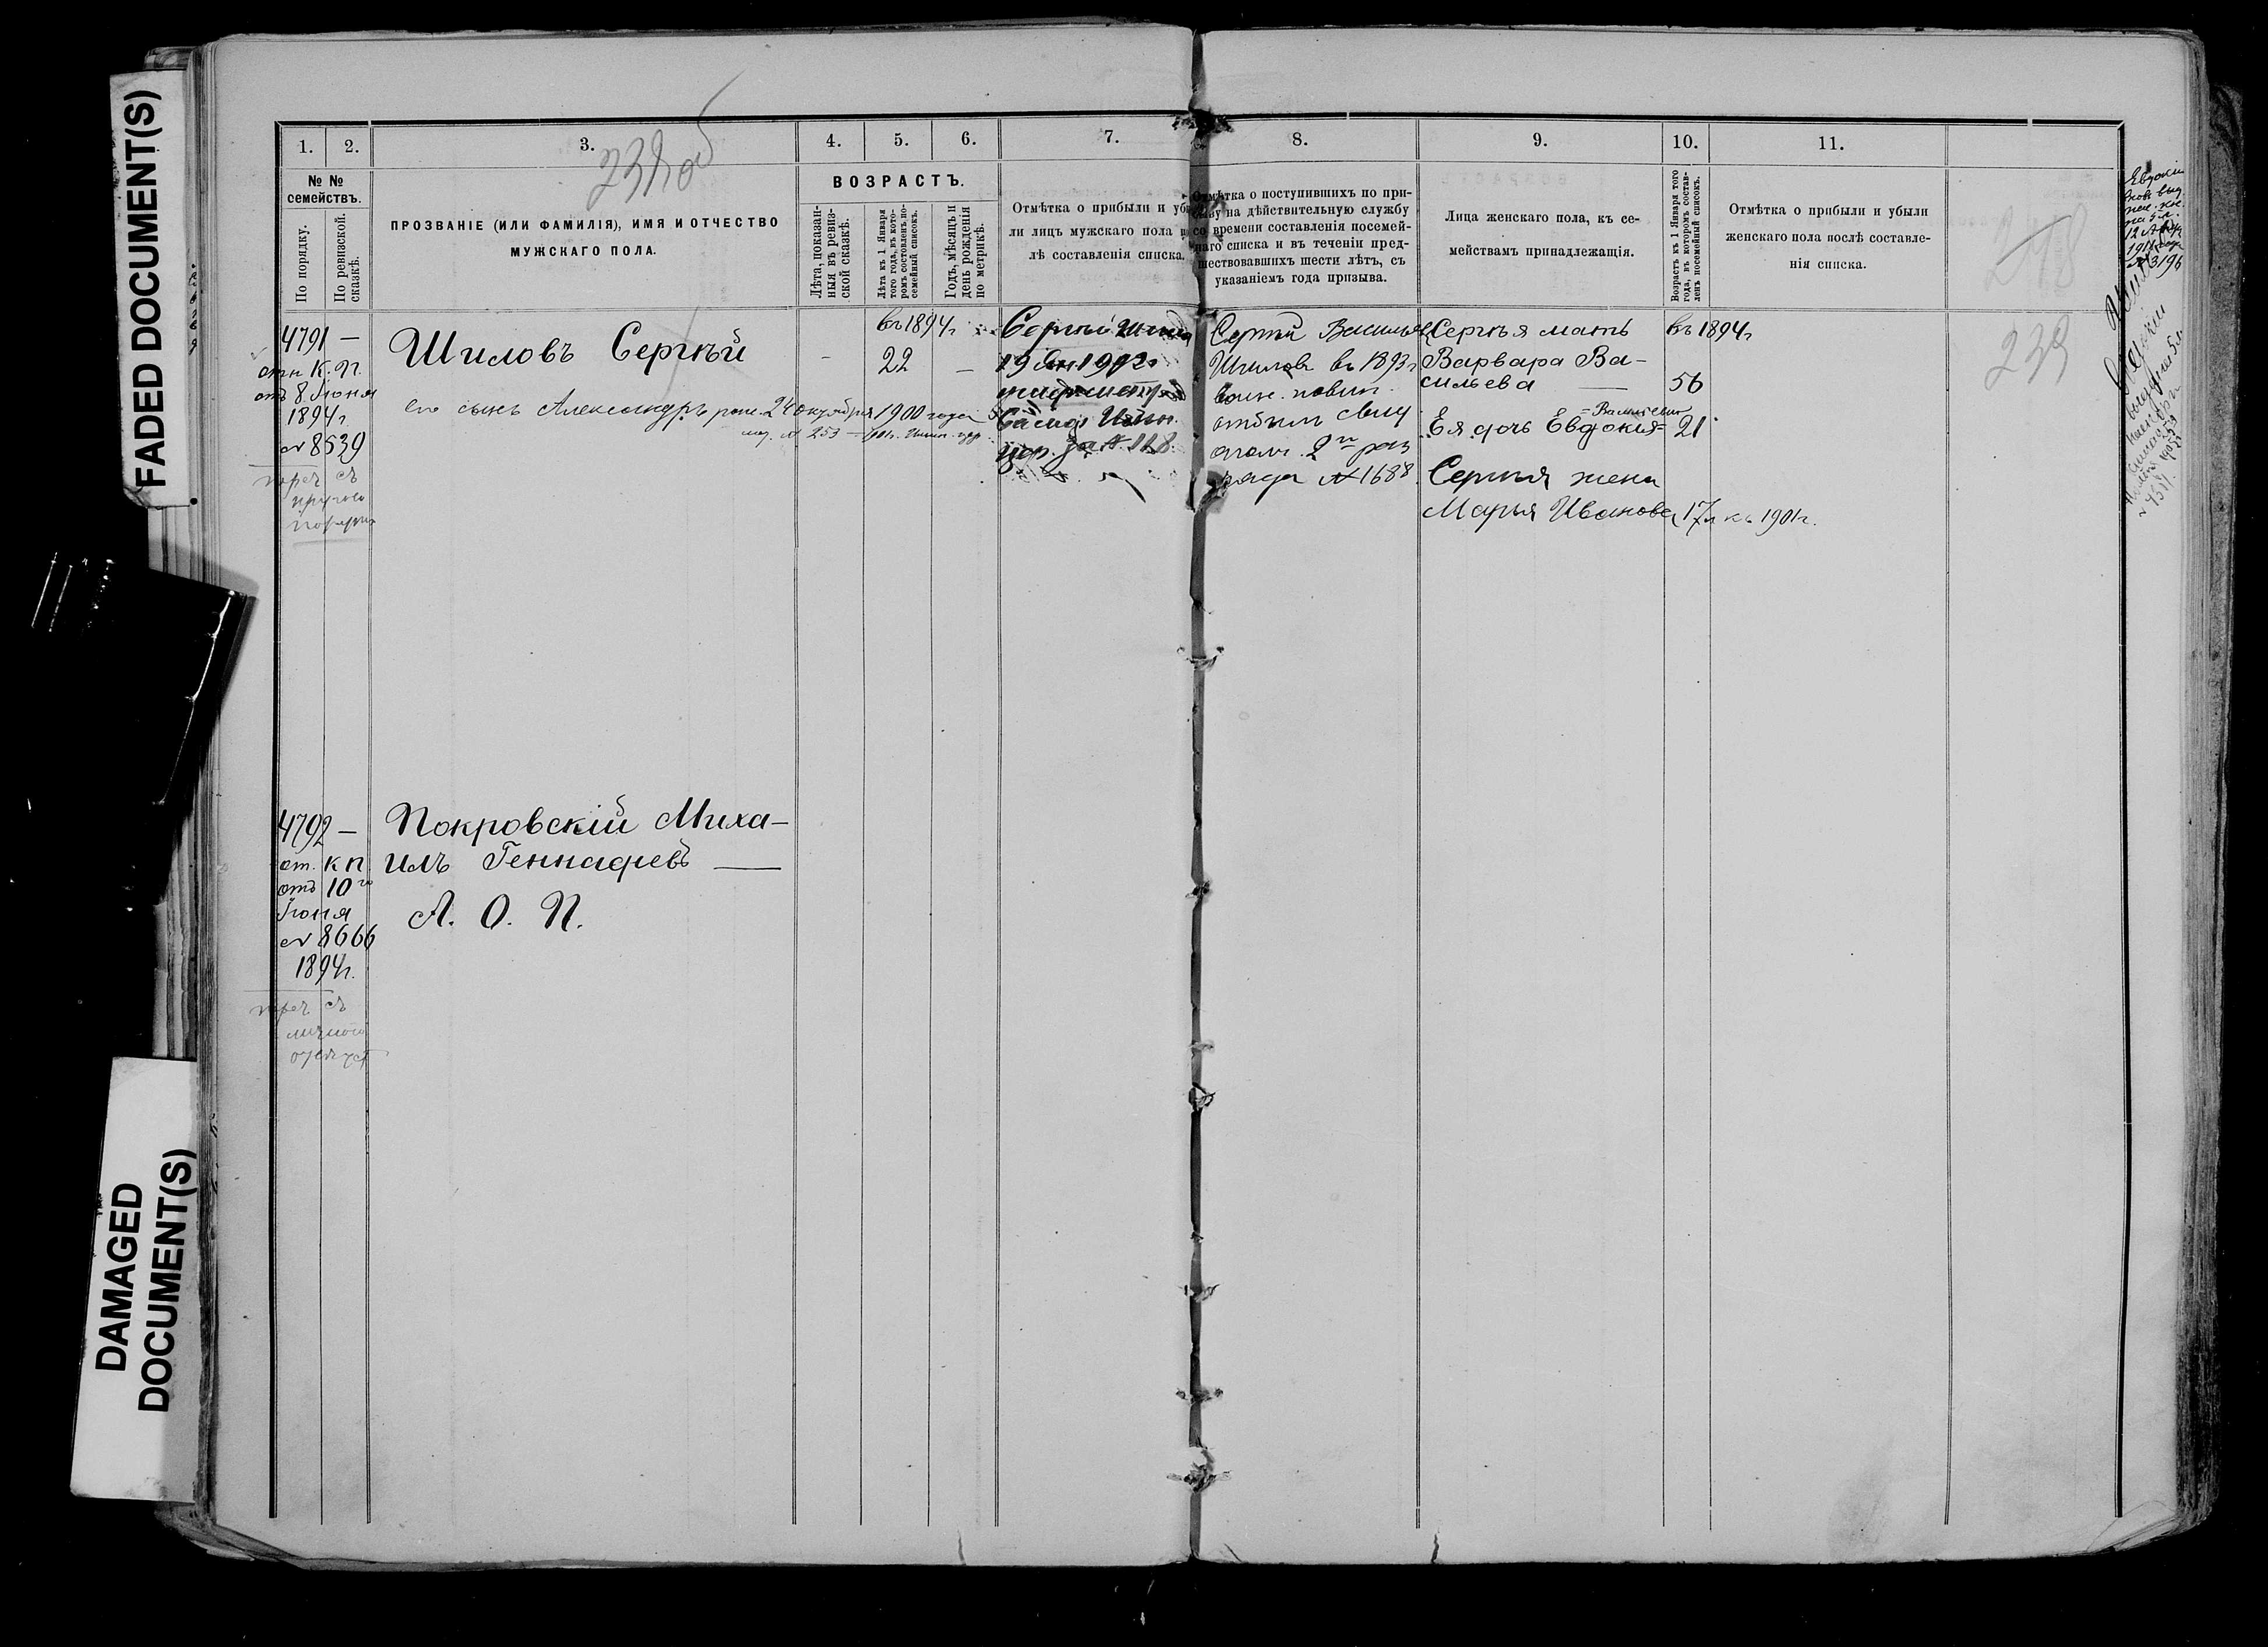 FADED DOCUMENT(S)
DAMAGED
DOCUMENT(S)
1.
2.
3.
4.
5.
6.
7.
8.
9.
10.
11.
№ №
семействъ.
По порядку.
По ревизской
сказкѣ.
ПРОЗВАНІЕ (ИЛИ ФАМИЛІЯ), ИМЯ И ОТЧЕСТВО
МУЖСКАГО ПОЛА.
ВОЗРАСТЪ.
Лѣта, показан-
ныя въ ревиз-
ской сказкѣ.
Лѣта къ 1 Января
того года, въ кото-
ромъ составленъ по-
семейный списокъ.
Годъ, мѣсяцъ и
день рожденія
по метрикѣ.
Отмѣтка о прибыли и
ли лицъ мужскаго пола
лѣ составленія списка.
Отмѣтка о поступившихъ по при-
на дѣйствительную службу
со времени составленія посемей-
наго списка и въ теченіи пред-
шествовавшихъ шести лѣтъ, съ
указаніемъ года призыва.
Лица женскаго пола, къ се-
мействамъ принадлежащія.
Возрастъ къ 1 Января того
года, въ которомъ состав-
ленъ посемейный списокъ.
Отмѣтка о прибыли и убыли
женскаго пола послѣ составле-
нія списка.
239
4791 —
отн К. П.
отъ 8 Іюня
1894 г
№ 8539
переч съ
Шиловъ Сергѣй
въ 1894 г
22
его сынъ Александръ рож. 24 октября 1900 года
№ 253
Сергѣй
19 1902 г
за № 118
Сергѣй Васильев
Шиловъ въ 1893 г
воин. повин.
отбыл свид
ополч. 2го раз
ряда № 1688
Сергѣя мать
Варвара Ва-
сильева —
въ 1894 г
56
Васильевна
Ея дочь Евдокия
21
Сергѣя жена
Марья Иванова
17 л къ 1901 г.
4792 —
от. К П
отъ 10 го
Іюня
№ 8666
1894 г.
переч съ
Покровскій Миха-
илъ Геннадіевъ —
А. О. П.
Евдокіи
12
1911
№ 3196